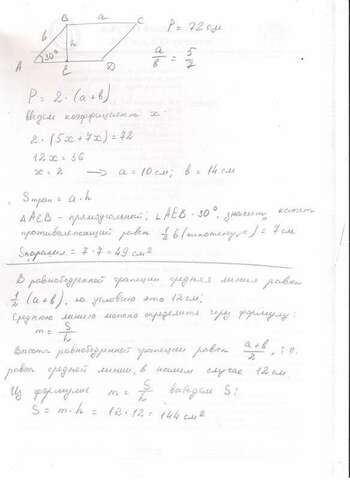 B a C
P = 72 см
b
h
a/b = 5/7
A 30° E D
P = 2·(a+b)
Введем коэффициент x
2·(5x+7x)=72
12x=36
x=2 → a=10см; b=14см
Sпар = a·h
△AEB - прямоугольный; ∠AEB-30°, значит катет
противолежащий равен ½b(гипотенузе)=7см
Sпарал. = 7·7=49см²
В равнобедренной трапеции средняя линия равна
½(a+b), по условию это 12см;
Среднюю линию можно определить через формулу:
m = S/h
Высота равнобедренной трапеции равна a+b/2, т.е.
равна средней линии, в нашем случае 12см
Из формулы m = S/h выводим S:
S = m·h = 12·12 = 144см²